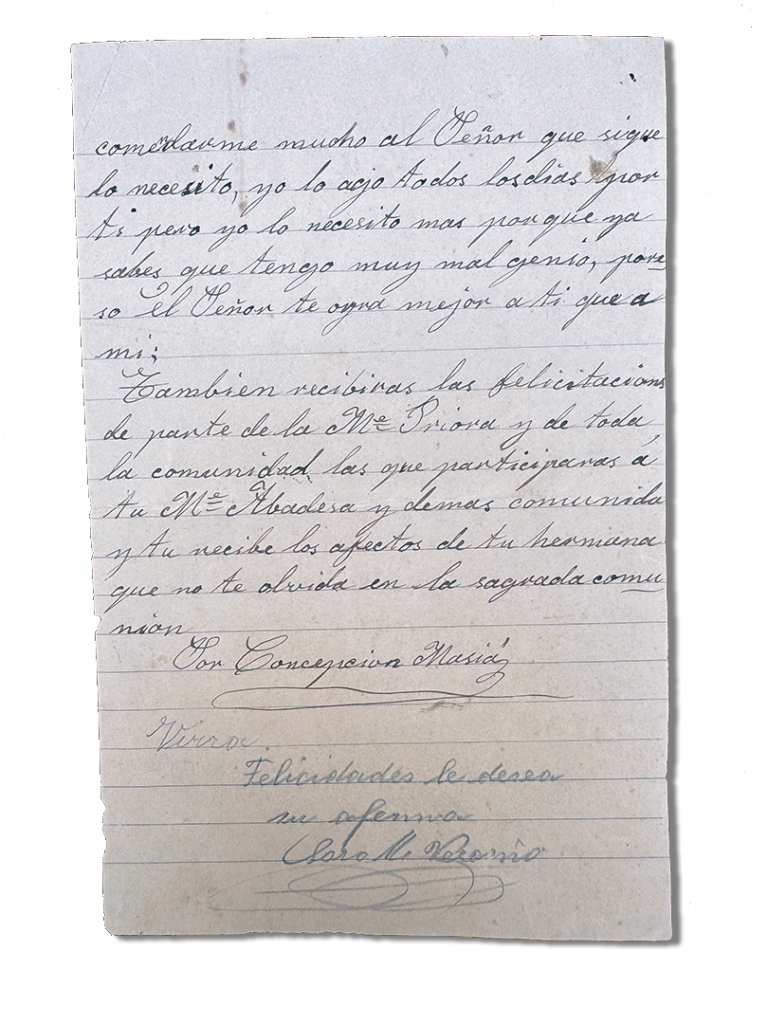 comendarme mucho al Señor que sigue
lo necesito, yo lo ago todos los dias por
ti pero yo lo necesito mas porque ya
sabes que tengo muy mal genio, pore
so el Señor te oyra mejor a ti que a
mi;
Tambien recibiras las felicitacions
de parte de la Me Priora y de toda
la comunidad las que participaras á
tu Me Abadesa y demas comunida
y tu recibe los afectos de tu hermana
que no te olvida en la sagrada comu
nion
Sor Concepcion Masiá
Felicidades le desea
su afenma